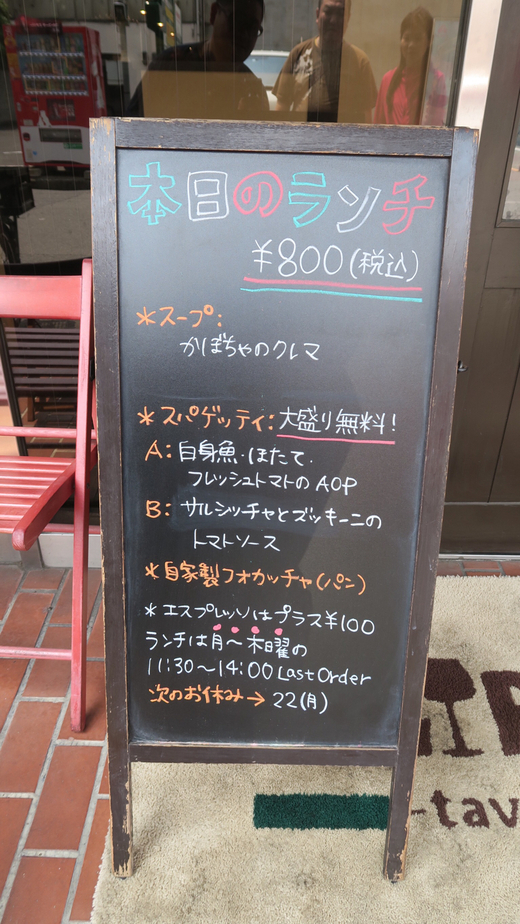 本日のランチ
¥800(税込)
*スープ:
かぼちゃのクレマ
*スパゲッティ:大盛り無料!
A:白身魚.ほたて.
フレッシュトマトのAOP
B:サルシッチャとズッキーニの
トマトソース
*自家製フォカッチャ(パン)
*エスプレッソはプラス¥100
ランチは月〜木曜の
11:30〜14:00 Last Order
次のお休み→22(月)
-tav